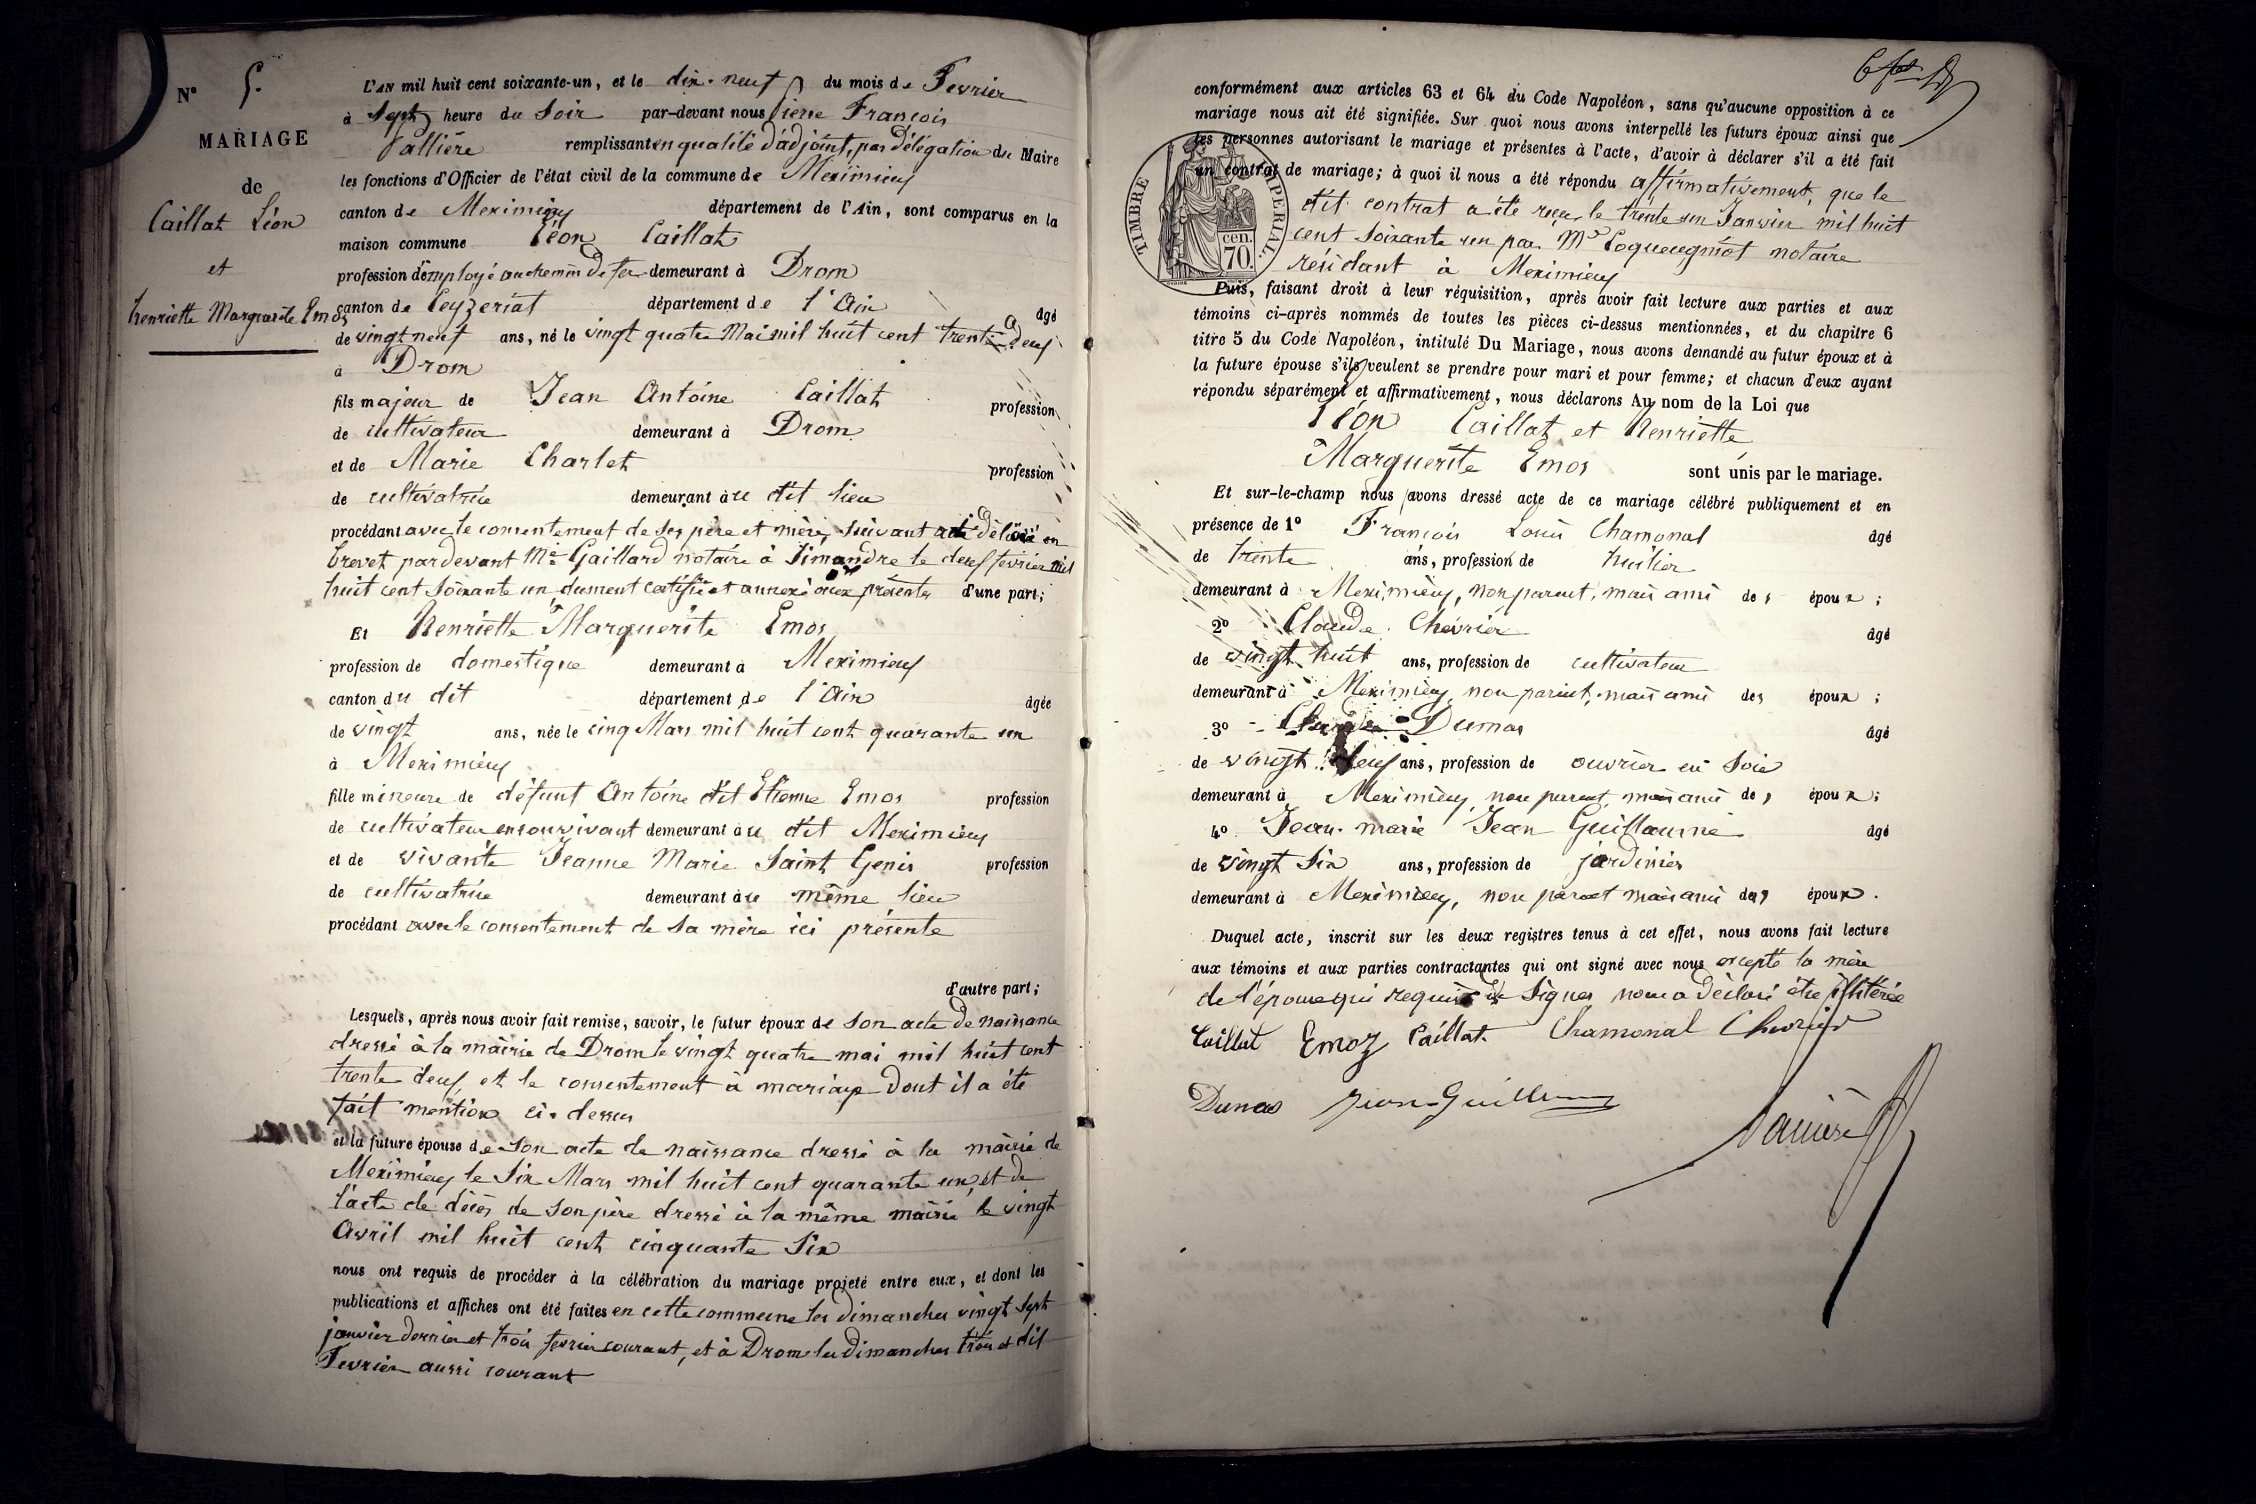 N° 5.
MARIAGE
de
Caillat Léon
et
henriette Marguerite Emos
L'AN mil huit cent soixante-un, et le dix-neuf du mois de Fevrier
à Sept heure du Soir par-devant nous pierre François
remplissant en qualité d'adjoint, par délégation du Maire
les fonctions d'Officier de l'état civil de la commune de Meximieux
canton de Meximieux département de l'Ain, sont comparus en la
maison commune Léon Caillat
profession d'employé au chemin de fer demeurant à Drom
canton de Ceyzeriat département de l'Ain âgé
de vingt neuf ans, né le vingt quatre Mai mil huit cent trente deux
à Drom
fils majeur de Jean Antoine Caillat profession
de cultivateur demeurant à Drom
et de Marie Charlet profession
de cultivatrice demeurant au dit lieu
procédant avec le consentement de ses père et mère, suivant acte délivré en
brevet pardevant Me Gaillard notaire à Simandre le deux fevrier mil
huit cent soixante un, dument certifié et annexé aux présentes d'une part;
Et Henriette Marguerite Emos
profession de domestique demeurant à Meximieux
canton du dit département de l'Ain âgée
de vingt ans, née le cinq Mars mil huit cent quarante un
à Meximieux
fille mineure de défunt Antoine dit Etienne Emos profession
de cultivateur en son vivant demeurant au dit Meximieux
et de vivante Jeanne Marie Saint Genis profession
de cultivatrice demeurant au même lieu
procédant avec le consentement de sa mère ici présente
d'autre part;
Lesquels, après nous avoir fait remise, savoir, le futur époux de son acte de naissance
dressé à la mairie de Drom le vingt quatre mai mil huit cent
trente deux, et le consentement à mariage dont il a été
fait mention ci-dessus
et la future épouse de son acte de naissance dressé à la mairie de
Meximieux le six Mars mil huit cent quarante un, et de
l'acte de décès de son père dressé à la même mairie le vingt
Avril mil huit cent cinquante six
nous ont requis de procéder à la célébration du mariage projeté entre eux, et dont les
publications et affiches ont été faites en cette commune les dimanches vingt sept
janvier dernier et trois fevrier courant, et à Drom les dimanches trois et dix
Fevrier aussi courant
conformément aux articles 63 et 64 du Code Napoléon, sans qu'aucune opposition à ce
mariage nous ait été signifiée. Sur quoi nous avons interpellé les futurs époux ainsi que
les personnes autorisant le mariage et présentes à l'acte, d'avoir à déclarer s'il a été fait
un contrat de mariage; à quoi il nous a été répondu affirmativement, que le
dit contrat a été reçu le trente un Janvier mil huit
cent soixante un par Me Coqueugniot notaire
résidant à Meximieux
TIMBRE IMPERIAL
70 cen.
Puis, faisant droit à leur réquisition, après avoir fait lecture aux parties et aux
témoins ci-après nommés de toutes les pièces ci-dessus mentionnées, et du chapitre 6
titre 5 du Code Napoléon, intitulé Du Mariage, nous avons demandé au futur époux et à
la future épouse s'ils veulent se prendre pour mari et pour femme; et chacun d'eux ayant
répondu séparément et affirmativement, nous déclarons Au nom de la Loi que
Léon Caillat et Henriette
Marguerite Emos sont unis par le mariage.
Et sur-le-champ nous avons dressé acte de ce mariage célébré publiquement et en
présence de 1° François Louis Chamonal âgé
de trente ans, profession de huilier
demeurant à Meximieux, non parent, mais ami des époux;
2° Claude Chevrier âgé
de vingt huit ans, profession de cultivateur
demeurant à Meximieux, non parent, mais ami des époux;
3° Dumas âgé
de vingt ans, profession de ouvrier en soie
demeurant à Meximieux, non parent, mais ami des époux;
4° Jean-marie Jean Guillaume âgé
de vingt six ans, profession de jardinier
demeurant à Meximieux, non parent mais ami des époux.
Duquel acte, inscrit sur les deux registres tenus à cet effet, nous avons fait lecture
aux témoins et aux parties contractantes qui ont signé avec nous excepté la mère
de l'épouse qui requise de signer nous a déclaré être illitérée
Caillat Emoz Caillat Chamonal Chevrier
Dumas Jean-Guillaume